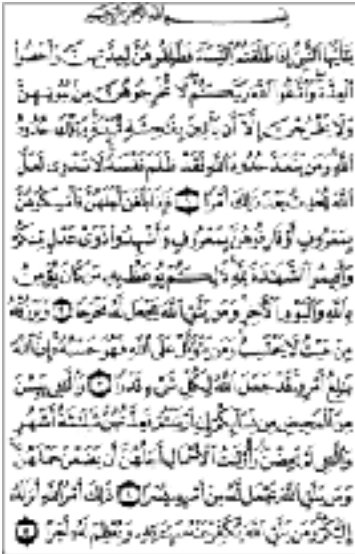 بِسْمِ اللَّهِ الرَّحْمَٰنِ الرَّحِيمِ
يَا أَيُّهَا النَّبِيُّ إِذَا طَلَّقْتُمُ النِّسَاءَ فَطَلِّقُوهُنَّ لِعِدَّتِهِنَّ وَأَحْصُوا
الْعِدَّةَ وَاتَّقُوا اللَّهَ رَبَّكُمْ لَا تُخْرِجُوهُنَّ مِنْ بُيُوتِهِنَّ
وَلَا يَخْرُجْنَ إِلَّا أَنْ يَأْتِينَ بِفَاحِشَةٍ مُبَيِّنَةٍ وَتِلْكَ حُدُودُ
اللَّهِ وَمَنْ يَتَعَدَّ حُدُودَ اللَّهِ فَقَدْ ظَلَمَ نَفْسَهُ لَا تَدْرِي لَعَلَّ
اللَّهَ يُحْدِثُ بَعْدَ ذَٰلِكَ أَمْرًا ١ فَإِذَا بَلَغْنَ أَجَلَهُنَّ فَأَمْسِكُوهُنَّ
بِمَعْرُوفٍ أَوْ فَارِقُوهُنَّ بِمَعْرُوفٍ وَأَشْهِدُوا ذَوَيْ عَدْلٍ مِنْكُمْ
وَأَقِيمُوا الشَّهَادَةَ لِلَّهِ ذَٰلِكُمْ يُوعَظُ بِهِ مَنْ كَانَ يُؤْمِنُ
بِاللَّهِ وَالْيَوْمِ الْآخِرِ وَمَنْ يَتَّقِ اللَّهَ يَجْعَلْ لَهُ مَخْرَجًا ٢ وَيَرْزُقْهُ
مِنْ حَيْثُ لَا يَحْتَسِبُ وَمَنْ يَتَوَكَّلْ عَلَى اللَّهِ فَهُوَ حَسْبُهُ إِنَّ اللَّهَ
بَالِغُ أَمْرِهِ قَدْ جَعَلَ اللَّهُ لِكُلِّ شَيْءٍ قَدْرًا ٣ وَاللَّائِي يَئِسْنَ
مِنَ الْمَحِيضِ مِنْ نِسَائِكُمْ إِنِ ارْتَبْتُمْ فَعِدَّتُهُنَّ ثَلَاثَةُ أَشْهُرٍ
وَاللَّائِي لَمْ يَحِضْنَ وَأُولَاتُ الْأَحْمَالِ أَجَلُهُنَّ أَنْ يَضَعْنَ حَمْلَهُنَّ
وَمَنْ يَتَّقِ اللَّهَ يَجْعَلْ لَهُ مِنْ أَمْرِهِ يُسْرًا ٤ ذَٰلِكَ أَمْرُ اللَّهِ أَنْزَلَهُ
إِلَيْكُمْ وَمَنْ يَتَّقِ اللَّهَ يُكَفِّرْ عَنْهُ سَيِّئَاتِهِ وَيُعْظِمْ لَهُ أَجْرًا ٥